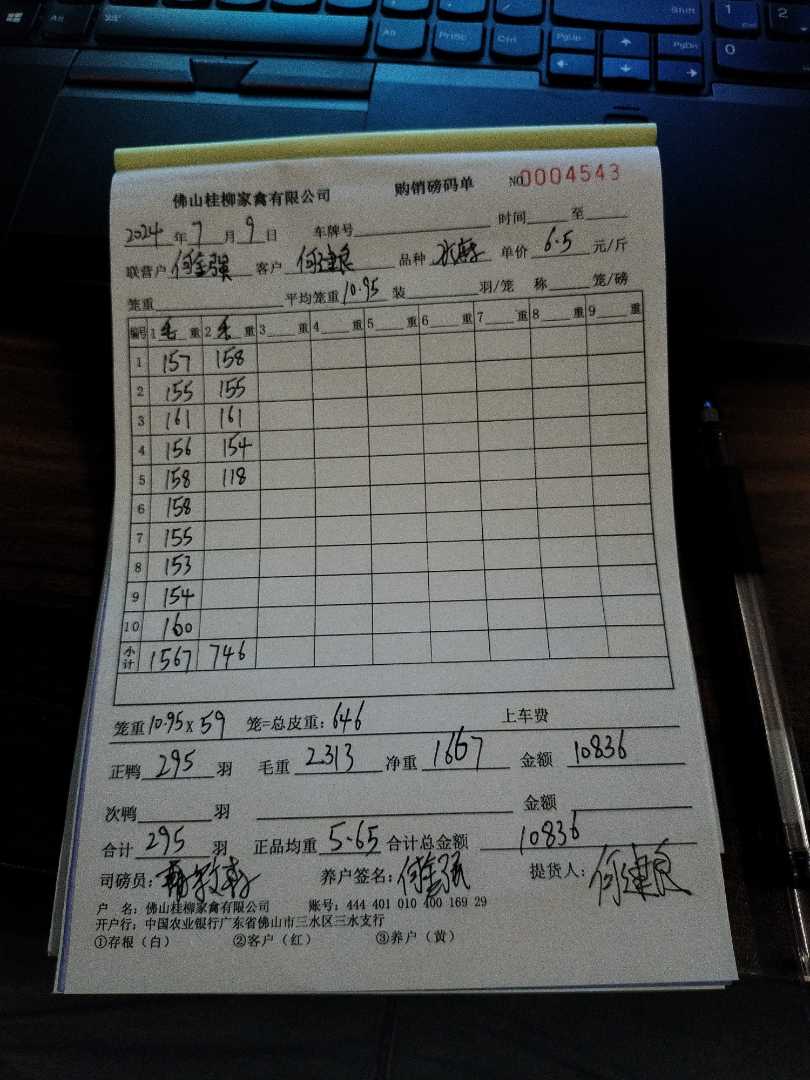 佛山桂柳家禽有限公司 购销磅码单 NO 0004543
2024 年 7 月 9 日 车牌号 时间 至
联营户 何金强 客户 何建良 品种 水麻 单价 6.5 元/斤
笼重 平均笼重 10.95 装 羽/笼 称 笼/磅
编号 1 毛 重 2 毛 重 3 重 4 重 5 重 6 重 7 重 8 重 9 重
1 157 158
2 155 155
3 161 161
4 156 154
5 158 118
6 158
7 155
8 153
9 154
10 160
小计 1567 746
笼重 10.95 x 59 笼=总皮重: 646 上车费
正鸭 295 羽 毛重 2313 净重 1667 金额 10836
次鸭 羽 金额
合计 295 羽 正品均重 5.65 合计总金额 10836
司磅员: 养户签名: 何金强 提货人: 何建良
户 名: 佛山桂柳家禽有限公司 账号: 444 401 010 400 169 29
开户行: 中国农业银行广东省佛山市三水区三水支行
①存根（白） ②客户（红） ③养户（黄）
Alt Alt PrtSc Ctrl PgUp PgDn Shift 1 2 0